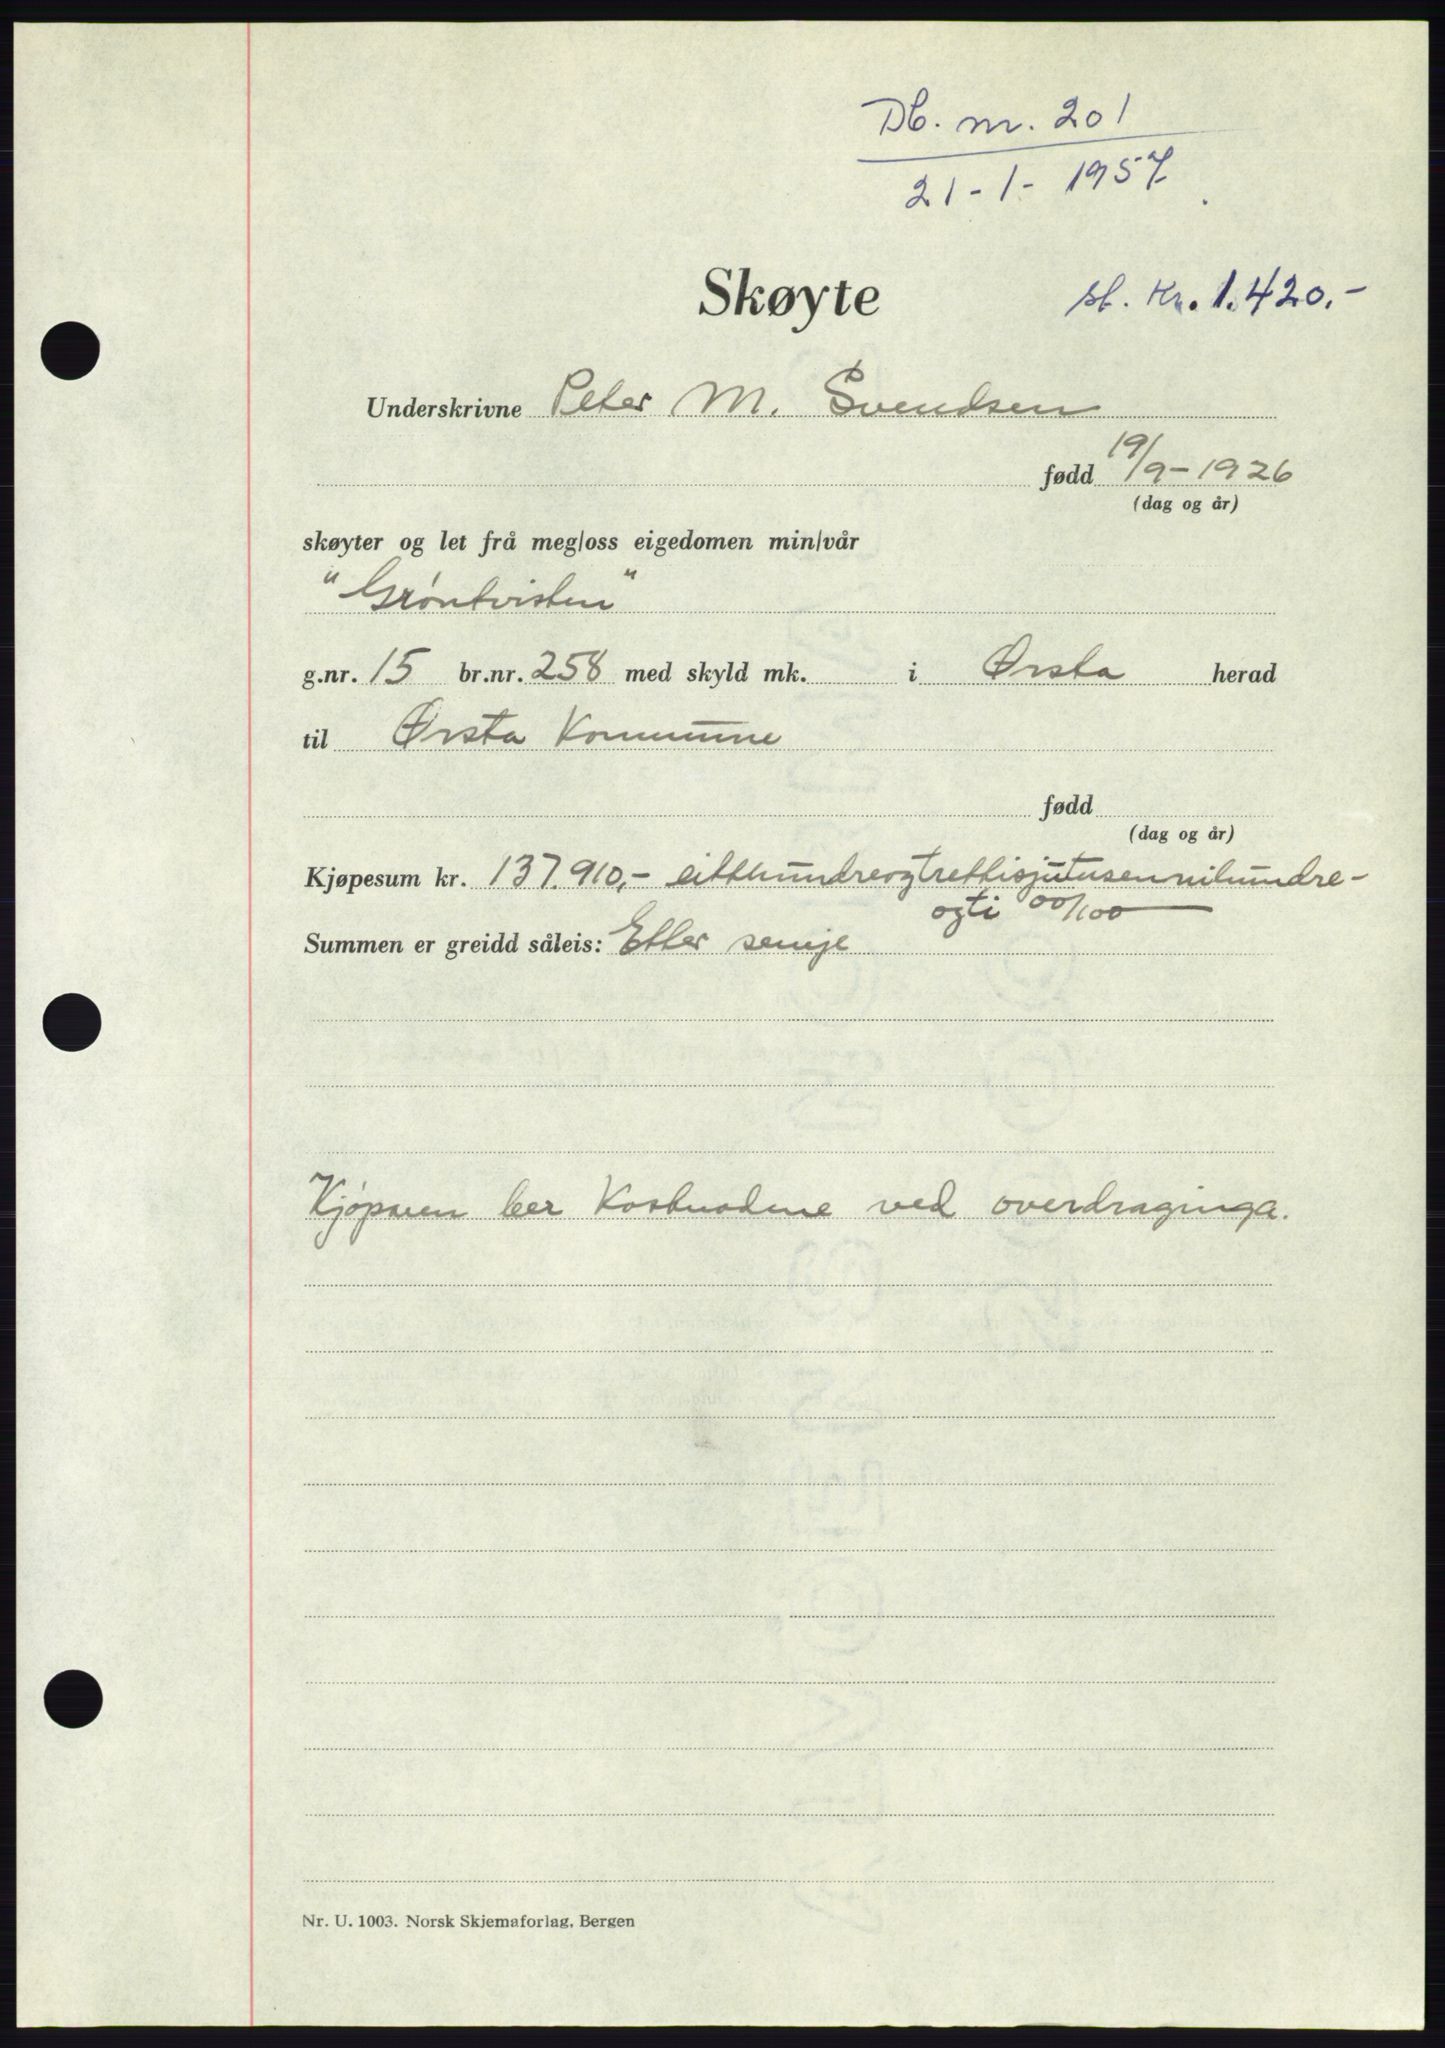 Db. nr. 201
21-1-1957
Skøyte
st. kr. 1.420.-
Underskrivne Peter M. Svendsen
fødd 19/9-1926
(dag og år)
skøyter og let frå meg/oss eigedomen min/vår
"Grøntvisten"
g.nr. 15 br.nr. 258 med skyld mk. i Ørsta herad
til Ørsta Kommune
fødd
(dag og år)
Kjøpesum kr. 137.910,- eitthundreogtrettisjutusennihundre-
ogti 00/100
Summen er greidd såleis: Etter semje
Kjøparen ber Kostnadene ved overdraginga.
Nr. U. 1003. Norsk Skjemaforlag, Bergen